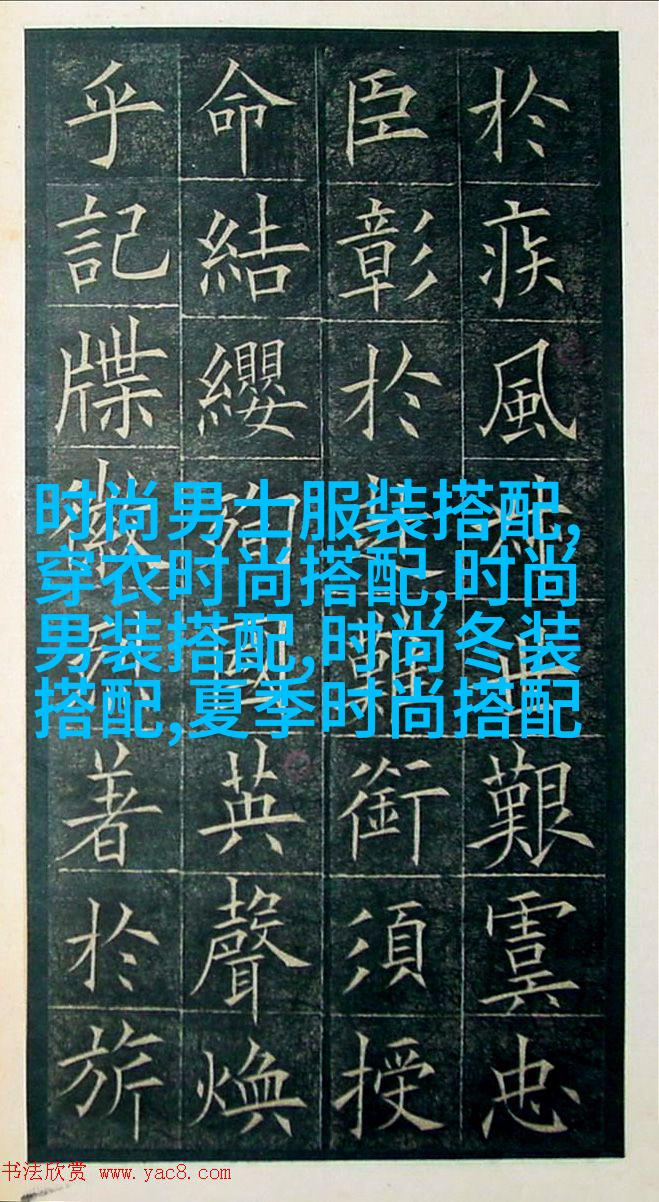 於疾風艱虞忠
臣彰於難銜須授
命結纓殉國英聲煥
乎記牒徽著於旂
时尚男士服装搭配,
穿衣时尚搭配,时尚
男装搭配,时尚冬装
搭配,夏季时尚搭配
书法欣赏 www.yac8.com